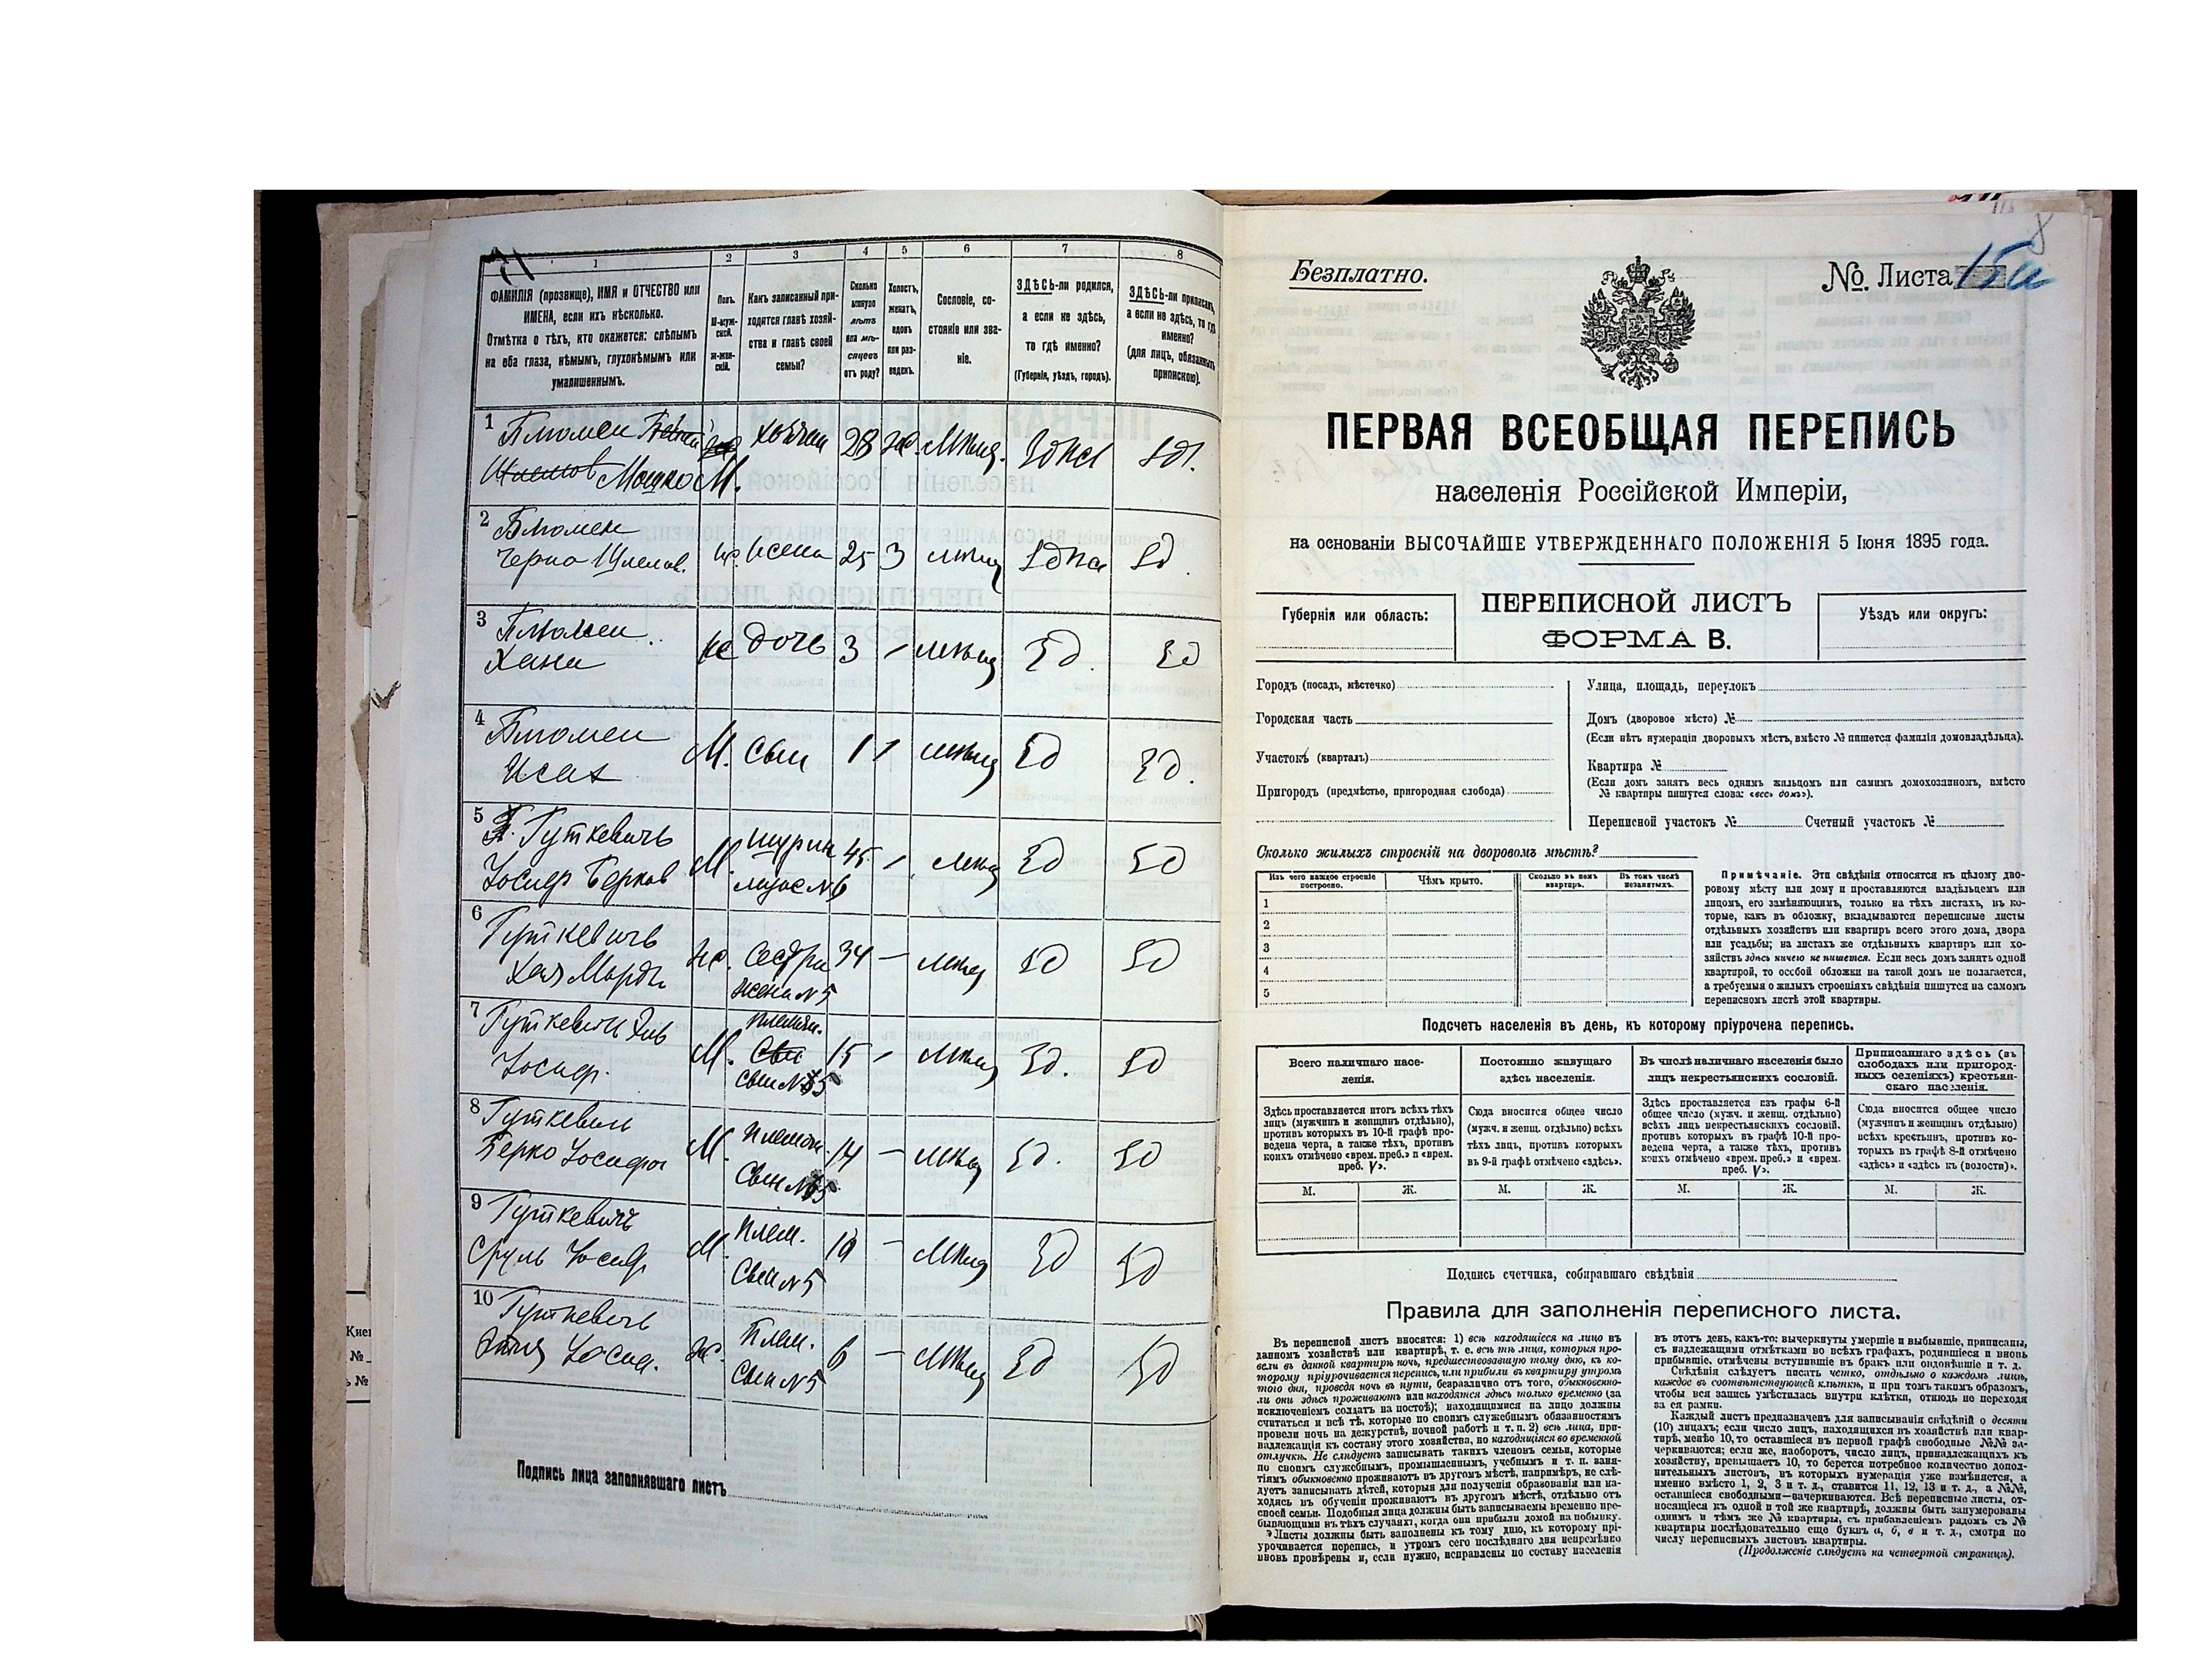 1
2
3
4
5
6
7
8
ФАМИЛІЯ (прозвище), ИМЯ и ОТЧЕСТВО или
ИМЕНА, если ихъ нѣсколько.
Отмѣтка о тѣхъ, кто окажется: слѣпымъ
на оба глаза, нѣмымъ, глухонѣмымъ или
умалишеннымъ.
Полъ.
М-муж-
ской.
ж-жен-
скій.
Какъ записанный при-
ходится главѣ хозяй-
ства и главѣ своей
семьи?
Сколько
минуло
лѣтъ
или мѣ-
сяцевъ
отъ роду?
Холостъ,
женатъ,
вдовъ
или раз-
веденъ.
Сословіе, со-
стояніе или зва-
ніе.
ЗДѢСЬ-ли родился,
а если не здѣсь,
то гдѣ именно?
(Губернія, уѣздъ, городъ).
ЗДѢСЬ-ли приписанъ,
а если не здѣсь, то гдѣ
именно?
(для лицъ, обязанныхъ
припискою).
1 Блюмен
Мошко М. 28
2 Блюмен
Черна ж. жена 25 3
3 Блюмен
Хана ж дочь 3 - Зд. Зд
4 Блюмен
Исак М. сын 1 - Зд Зд.
5 Гуткевичъ М. шурин 45 - Зд Зд
Иосиф Берков муж №6
6 Гуткевичъ ж. сестра 34 - Зд Зд
Хая жена №5
7 Гуткевич М. племян. 15 - Зд. Зд
Иосиф. сын №5
8 Гуткевичъ М. племян. 14 - Зд. Зд
Берко Иосифов сын №5
9 Гуткевичъ М. плем. - Зд Зд
Сруль Иосиф сын №5
10 Гуткевичъ ж. Плем. 6 - Зд Зд
Иосиф. №5
Подпись лица заполнявшаго листъ
Безплатно.
№ Листа 15а
ПЕРВАЯ ВСЕОБЩАЯ ПЕРЕПИСЬ
населенія Россійской Имперіи,
на основаніи ВЫСОЧАЙШЕ УТВЕРЖДЕННАГО ПОЛОЖЕНІЯ 5 Іюня 1895 года.
Губернія или область:
ПЕРЕПИСНОЙ ЛИСТЪ
ФОРМА В.
Уѣздъ или округъ:
Городъ (посадъ, мѣстечко)
Городская часть
Участокъ (кварталъ)
Пригородъ (предмѣстье, пригородная слобода)
Улица, площадь, переулокъ
Домъ (дворовое мѣсто) №
(Если нѣтъ нумераціи дворовыхъ мѣстъ, вмѣсто № пишется фамилія домовладѣльца).
Квартира №
(Если домъ занятъ весь однимъ жильцомъ или самимъ домохозяиномъ, вмѣсто
№ квартиры пишутся слова: «весь домъ»).
Переписной участокъ № Счетный участокъ №
Сколько жилыхъ строеній на дворовомъ мѣстѣ?
Изъ чего каждое строеніе
построено.
Чѣмъ крыто.
Сколько въ немъ
квартиръ.
Въ томъ числѣ
незанятыхъ.
1
2
3
4
5
Примѣчаніе. Эти свѣдѣнія относятся къ цѣлому дво-
ровому мѣсту или дому и проставляются владѣльцемъ или
лицомъ, его замѣняющимъ, только на тѣхъ листахъ, въ ко-
торые, какъ въ обложку, вкладываются переписные листы
отдѣльныхъ хозяйствъ или квартиръ всего этого дома, двора
или усадьбы; на листахъ же отдѣльныхъ квартиръ или хо-
зяйствъ здѣсь ничего не пишется. Если весь домъ занятъ одной
квартирой, то особой обложки на такой домъ не полагается,
а требуемыя о жилыхъ строеніяхъ свѣдѣнія пишутся на самомъ
переписномъ листѣ этой квартиры.
Подсчетъ населенія въ день, къ которому пріурочена перепись.
Всего наличнаго насе-
ленія.
Постоянно живущаго
здѣсь населенія.
Въ числѣ наличнаго населенія было
лицъ некрестьянскихъ сословій.
Приписаннаго здѣсь (въ
слободахъ или пригород-
ныхъ селеніяхъ) крестьян-
скаго населенія.
Здѣсь проставляется итогъ всѣхъ тѣхъ
лицъ (мужчинъ и женщинъ отдѣльно),
противъ которыхъ въ 10-й графѣ про-
ведена черта, а также тѣхъ, противъ
коихъ отмѣчено «врем. преб.» и «врем.
преб. V».
Сюда вносится общее число
(мужч. и женщ. отдѣльно) всѣхъ
тѣхъ лицъ, противъ которыхъ
въ 9-й графѣ отмѣчено «здѣсь».
Здѣсь проставляется изъ графы 6-й
общее число (мужч. и женщ. отдѣльно)
всѣхъ лицъ некрестьянскихъ сословій,
противъ которыхъ въ графѣ 10-й про-
ведена черта, а также тѣхъ, противъ
коихъ отмѣчено «врем. преб.» и «врем.
преб. V».
Сюда вносится общее число
(мужчинъ и женщинъ отдѣльно)
всѣхъ крестьянъ, противъ ко-
торыхъ въ графѣ 8-й отмѣчено
«здѣсь» и «здѣсь къ (волости)».
М. Ж. М. Ж. М. Ж. М. Ж.
Подпись счетчика, собиравшаго свѣдѣнія
Правила для заполненія переписного листа.
Въ переписной листъ вносятся: 1) всѣ находящіеся на лицо въ
данномъ хозяйствѣ или квартирѣ, т. е. всѣ тѣ лица, которыя про-
вели въ данной квартирѣ ночь, предшествовавшую тому дню, къ ко-
торому пріурочивается перепись, или прибыли въ квартиру утромъ
того дня, проведя ночь въ пути, безразлично отъ того, обыкновенно-
ли они здѣсь проживаютъ или находятся здѣсь только временно (за
исключеніемъ солдатъ на постоѣ); находящимися на лицо должны
считаться и всѣ тѣ, которые по своимъ служебнымъ обязанностямъ
провели ночь на дежурствѣ, ночной работѣ и т. п. 2) всѣ лица, при-
надлежащія къ составу этого хозяйства, но находящіяся во временной
отлучкѣ. Не слѣдуетъ записывать такихъ членовъ семьи, которые
по своимъ служебнымъ, промышленнымъ, учебнымъ и т. п. заня-
тіямъ обыкновенно проживаютъ въ другомъ мѣстѣ, напримѣръ, не слѣ-
дуетъ записывать дѣтей, которыя для полученія образованія или на-
ходясь въ обученіи проживаютъ въ другомъ мѣстѣ, отдѣльно отъ
своей семьи. Подобныя лица должны быть записываемы временно пре-
бывающими въ тѣхъ случаяхъ, когда они прибыли домой на побывку.
Листы должны быть заполнены къ тому дню, къ которому прі-
урочивается перепись, и утромъ сего послѣдняго дня непремѣнно
вновь провѣрены и, если нужно, исправлены по составу населенія
въ этотъ день, какъ-то: вычеркнуты умершіе и выбывшіе, приписаны,
съ надлежащими отмѣтками во всѣхъ графахъ, родившіеся и вновь
прибывшіе, отмѣчены вступившіе въ бракъ или овдовѣвшіе и т. д.
Свѣдѣнія слѣдуетъ писать четко, отдѣльно о каждомъ лицѣ,
каждое въ соотвѣтствующей клѣткѣ, и при томъ такимъ образомъ,
чтобы вся запись умѣстилась внутри клѣтки, отнюдь не переходя
за ея рамки.
Каждый листъ предназначенъ для записыванія свѣдѣній о десяти
(10) лицахъ; если число лицъ, находящихся въ хозяйствѣ или квар-
тирѣ, менѣе 10, то оставшіеся въ первой графѣ свободные №№ за-
черкиваются; если же, наоборотъ, число лицъ, принадлежащихъ къ
хозяйству, превышаетъ 10, то берется потребное количество допол-
нительныхъ листовъ, въ которыхъ нумерація уже измѣняется, а
именно вмѣсто 1, 2, 3 и т. д., ставится 11, 12, 13 и т. д., а №№,
оставшіеся свободными—зачеркиваются. Всѣ переписные листы, от-
носящіеся къ одной и той же квартирѣ, должны быть занумерованы
однимъ и тѣмъ же № квартиры, съ прибавленіемъ рядомъ съ №
квартиры послѣдовательно еще буквъ а, б, в и т. д., смотря по
числу переписныхъ листовъ квартиры.
(Продолженіе слѣдуетъ на четвертой страницѣ).